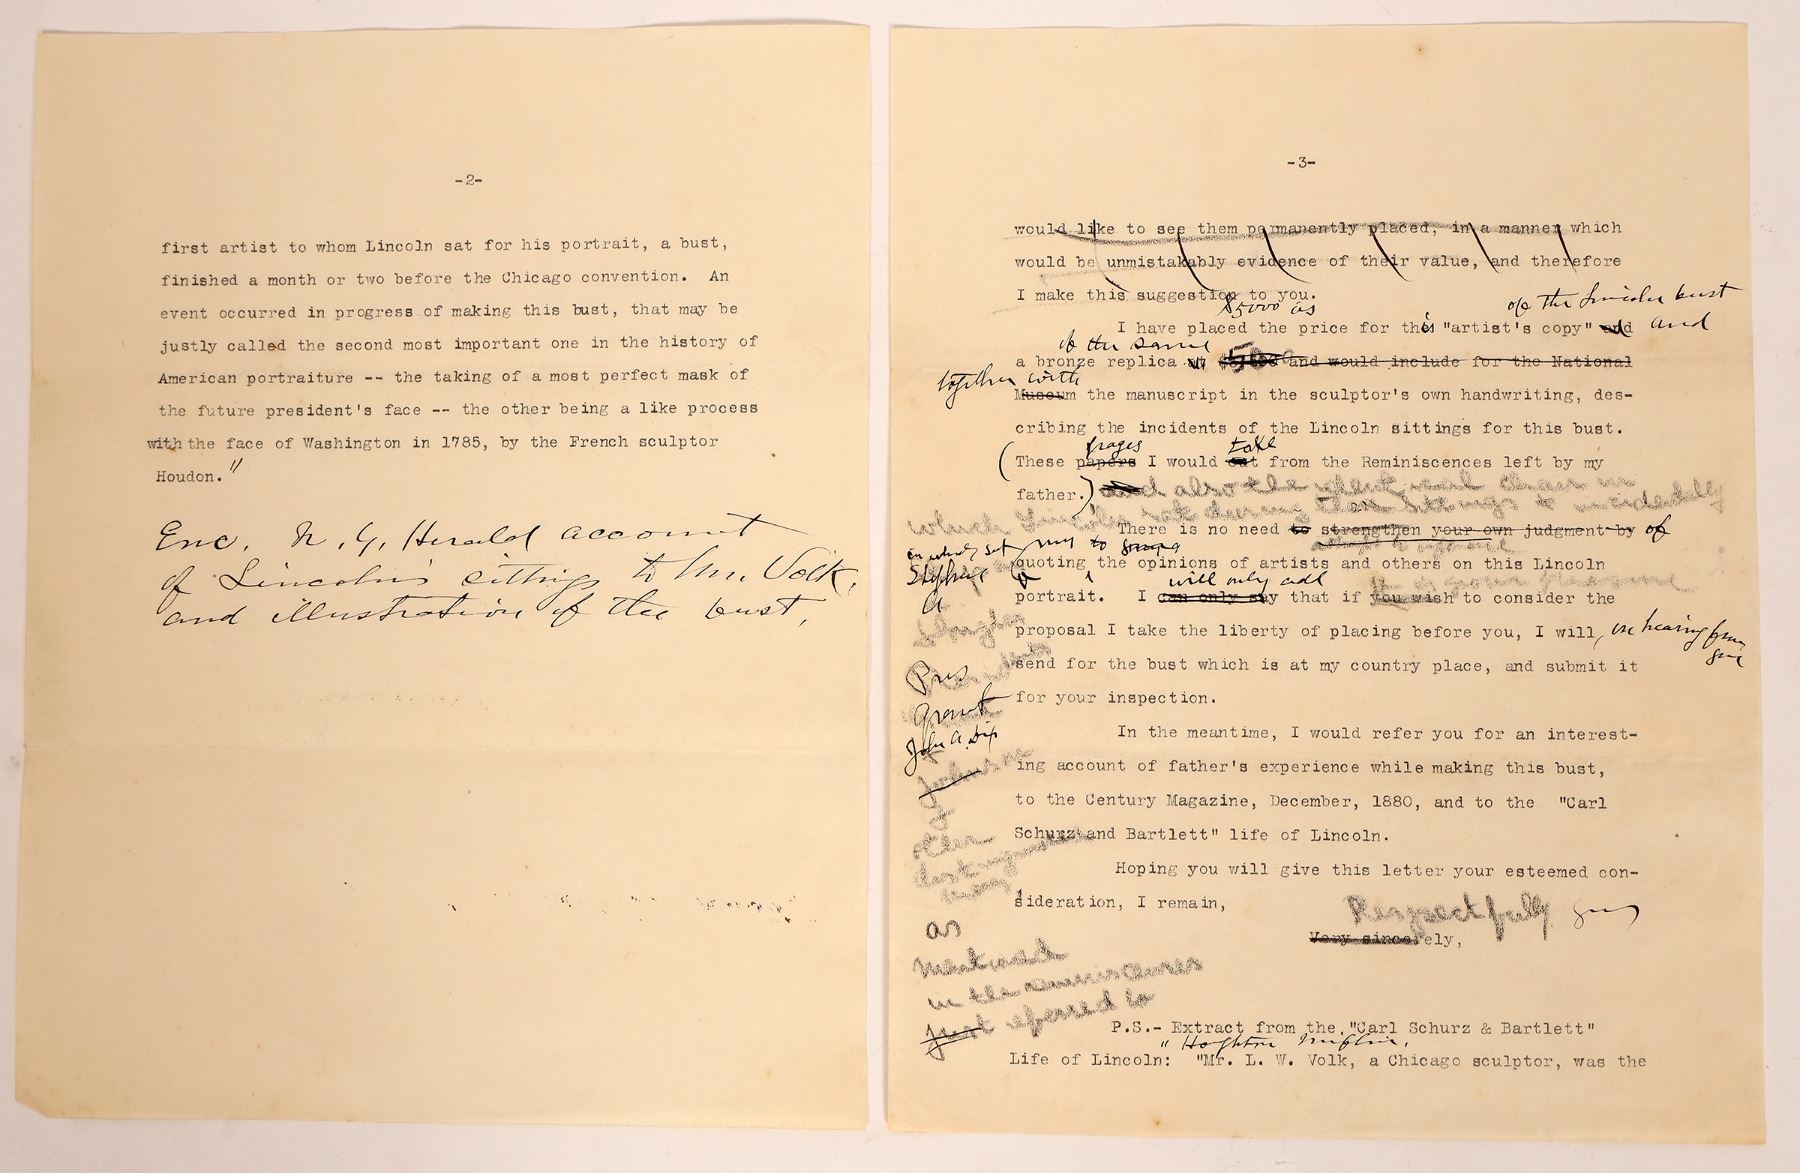 -2-
first artist to whom Lincoln sat for his portrait, a bust,
finished a month or two before the Chicago convention. An
event occurred in progress of making this bust, that may be
justly called the second most important one in the history of
American portraiture -- the taking of a most perfect mask of
the future president's face -- the other being a like process
with the face of Washington in 1785, by the French sculptor
Houdon."
Enc. N.Y. Herald account
of Lincoln's sittings to Mr. Volk,
and illustration of the bust,
-3-
would like to see them permanently placed, in a manner which
would be unmistakably evidence of their value, and therefore
I make this suggestion to you.
$5000 as
of the Lincoln bust
I have placed the price for this "artist's copy" and and
of the same
a bronze replica and would include for the National
together with
Museum the manuscript in the sculptor's own handwriting, des-
cribing the incidents of the Lincoln sittings for this bust.
pages take
(These papers I would cut from the Reminiscences left by my
father.) and also the chair in
which Lincoln sat during the sittings to incidentally
There is no need to strengthen your own judgment by of
in which sat
Stephen
quoting the opinions of artists and others on this Lincoln
will only add
portrait. I can only say that if you wish to consider the
A
Douglas
proposal I take the liberty of placing before you, I will, on hearing from
you
send for the bust which is at my country place, and submit it
Pres
for your inspection.
Grant
John A. Dix
In the meantime, I would refer you for an interest-
Johnson
ing account of father's experience while making this bust,
to the Century Magazine, December, 1880, and to the "Carl
other
distinguished
men
Schurz and Bartlett" life of Lincoln.
Hoping you will give this letter your esteemed con-
sideration, I remain,
Respectfully yours
Very sincerely,
as
mentioned
in the reminiscences
just referred to
P.S.- Extract from the "Carl Schurz & Bartlett"
" Houghton Mifflin,
Life of Lincoln: "Mr. L. W. Volk, a Chicago sculptor, was the